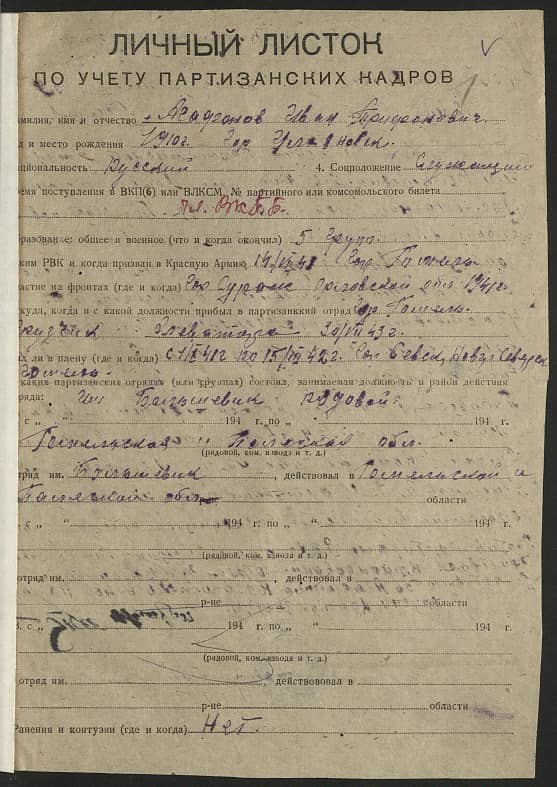 ЛИЧНЫЙ ЛИСТОК
ПО УЧЕТУ ПАРТИЗАНСКИХ КАДРОВ
амилия, имя и отчество Агафонов Иван Трифонович.
д и место рождения 1910г. Гор Ульяновск.
циональность Русский 4. Соцположение Служащий
ремя поступления в ВКП(б) или ВЛКСМ, № партийного или комсомольского билета
чл. ВКб.б.
бразование: общее и военное (что и когда окончил) 5 групп.
ким РВК и когда призван в Красную Армию 14/VII 41 Гор Гомель
астие на фронтах (где и когда) Гор Сураж Орловской обл 1941г.
куда, когда и с какой должности прибыл в партизанкий отряд гр Гомель.
Грузчик Элеватора 20/VII 43г.
л ли в плену (где и когда) с 1/X 41г по 15/VII 42г. Гор Севск, Новгр Северск
Гомель.
каких партизанских отрядах (или группах) состоял, занимаемая должность и район действия
ряда: им Большевик рядовой
с „ “ 194 г. по „ “ 194 г.
Гомельская и Полесская обл.
(рядовой, ком. взвода и т. д.)
тряд им. Большевик , действовал в Гомельской и
Полесской обл области
с „ “ 194 г. по „ “ 194 г.
(рядовой, ком. взвода и т. д.)
отряд им. , действовал в
р-не области
3. с „ “ 194 г. по „ “ 194 г.
(рядовой, ком. взвода и т. д.)
отряд им. , действовал в
р-не области
Ранения и контузии (где и когда) Нет